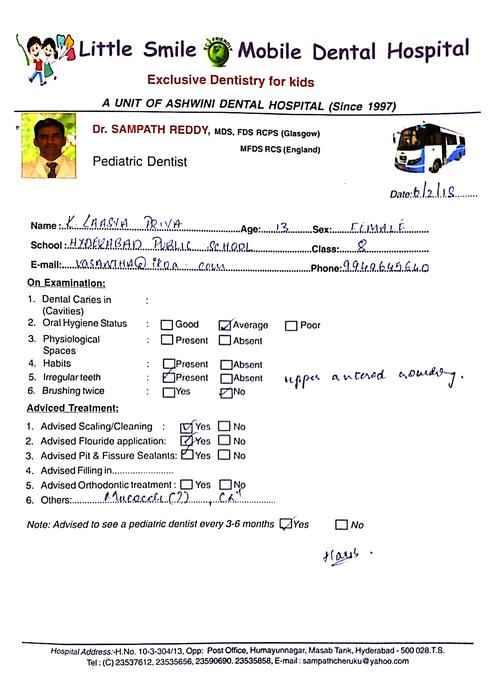 Little Smile Mobile Dental Hospital
Exclusive Dentistry for kids
A UNIT OF ASHWINI DENTAL HOSPITAL (Since 1997)
Dr. SAMPATH REDDY, MDS, FDS RCPS (Glasgow)
MFDS RCS (England)
Pediatric Dentist
Date: 6/2/15
Name: K LAASYA PRIYA Age: 13 Sex: FEMALE
School: HYDERABAD PUBLIC SCHOOL Class: 8
E-mail: Phone:
On Examination:
1. Dental Caries in :
(Cavities)
2. Oral Hygiene Status : Good Average Poor
3. Physiological : Present Absent
Spaces
4. Habits : Present Absent
5. Irregular teeth : Present Absent upper crowding.
6. Brushing twice : Yes No
Adviced Treatment:
1. Advised Scaling/Cleaning : Yes No
2. Advised Flouride application: Yes No
3. Advised Pit & Fissure Sealants: Yes No
4. Advised Filling in....................
5. Advised Orthodontic treatment : Yes No
6. Others:
Note: Advised to see a pediatric dentist every 3-6 months Yes No
Hospital Address:-H.No. 10-3-304/13, Opp: Post Office, Humayunnagar, Masab Tank, Hyderabad - 500 028.T.S.
Tel : (C) 23537612, 23535656, 23590690. 23535858, E-mail : sampathcheruku@yahoo.com